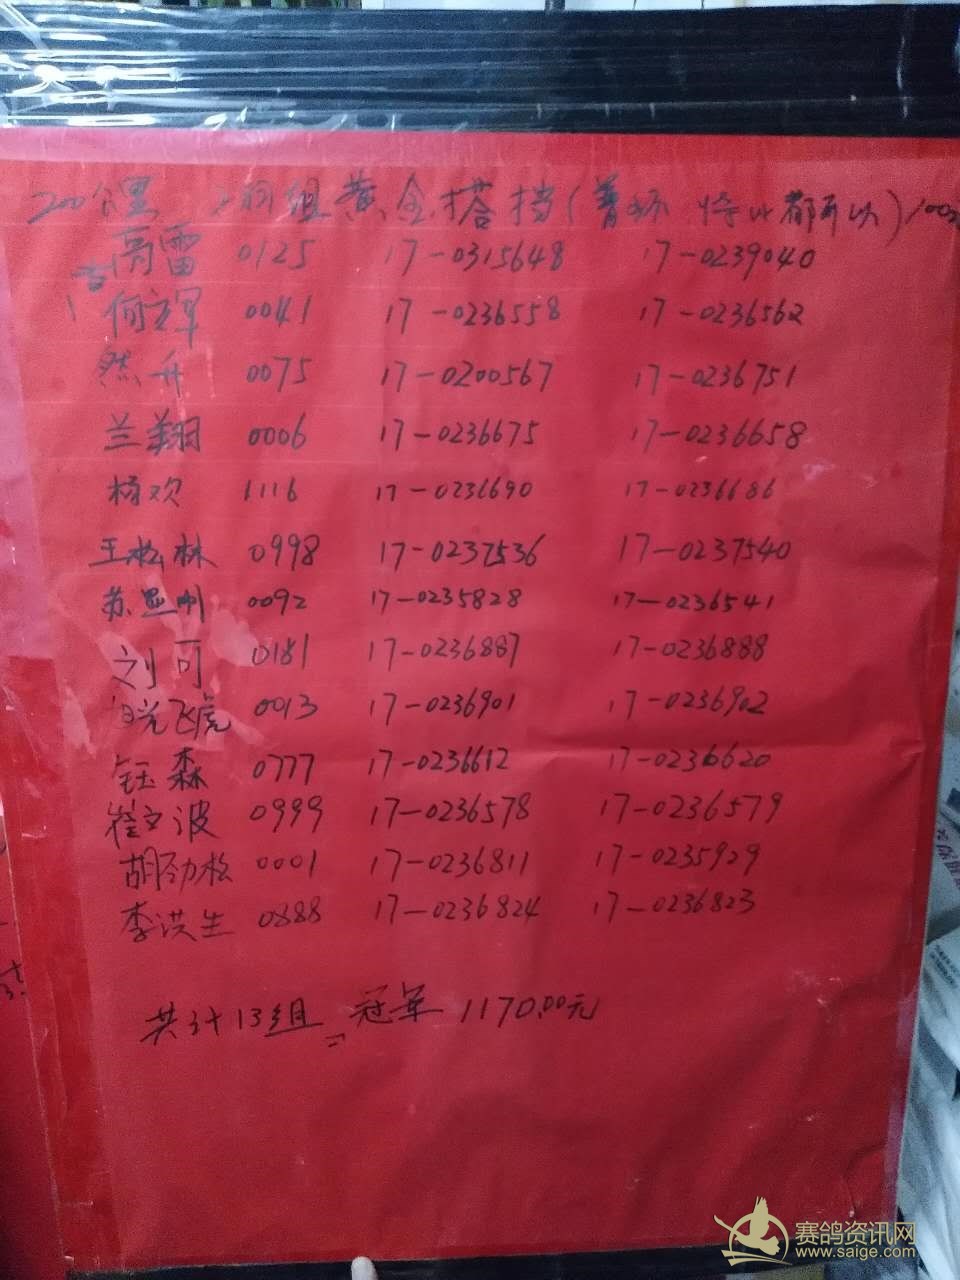 200公里 2羽组黄金搭挡(普环 特比都可以)100
高雷 0125 17-0315648 17-0239040
何立军 0041 17-0236558 17-0236562
然升 0075 17-0200567 17-0236751
兰翔 0006 17-0236675 17-0236658
杨欢 1116 17-0236690 17-0236686
王松林 0998 17-0237536 17-0237540
苏显刚 0092 17-0235828 17-0236541
刘可 0181 17-0236887 17-0236888
飞虎 0013 17-0236901 17-0236902
钰森 0777 17-0236612 17-0236620
崔文波 0999 17-0236578 17-0236579
胡劲松 0001 17-0236811 17-0235929
李洪生 0888 17-0236824 17-0236823
共计13组 冠军 1170.00元
赛鸽资讯网
www.saige.com